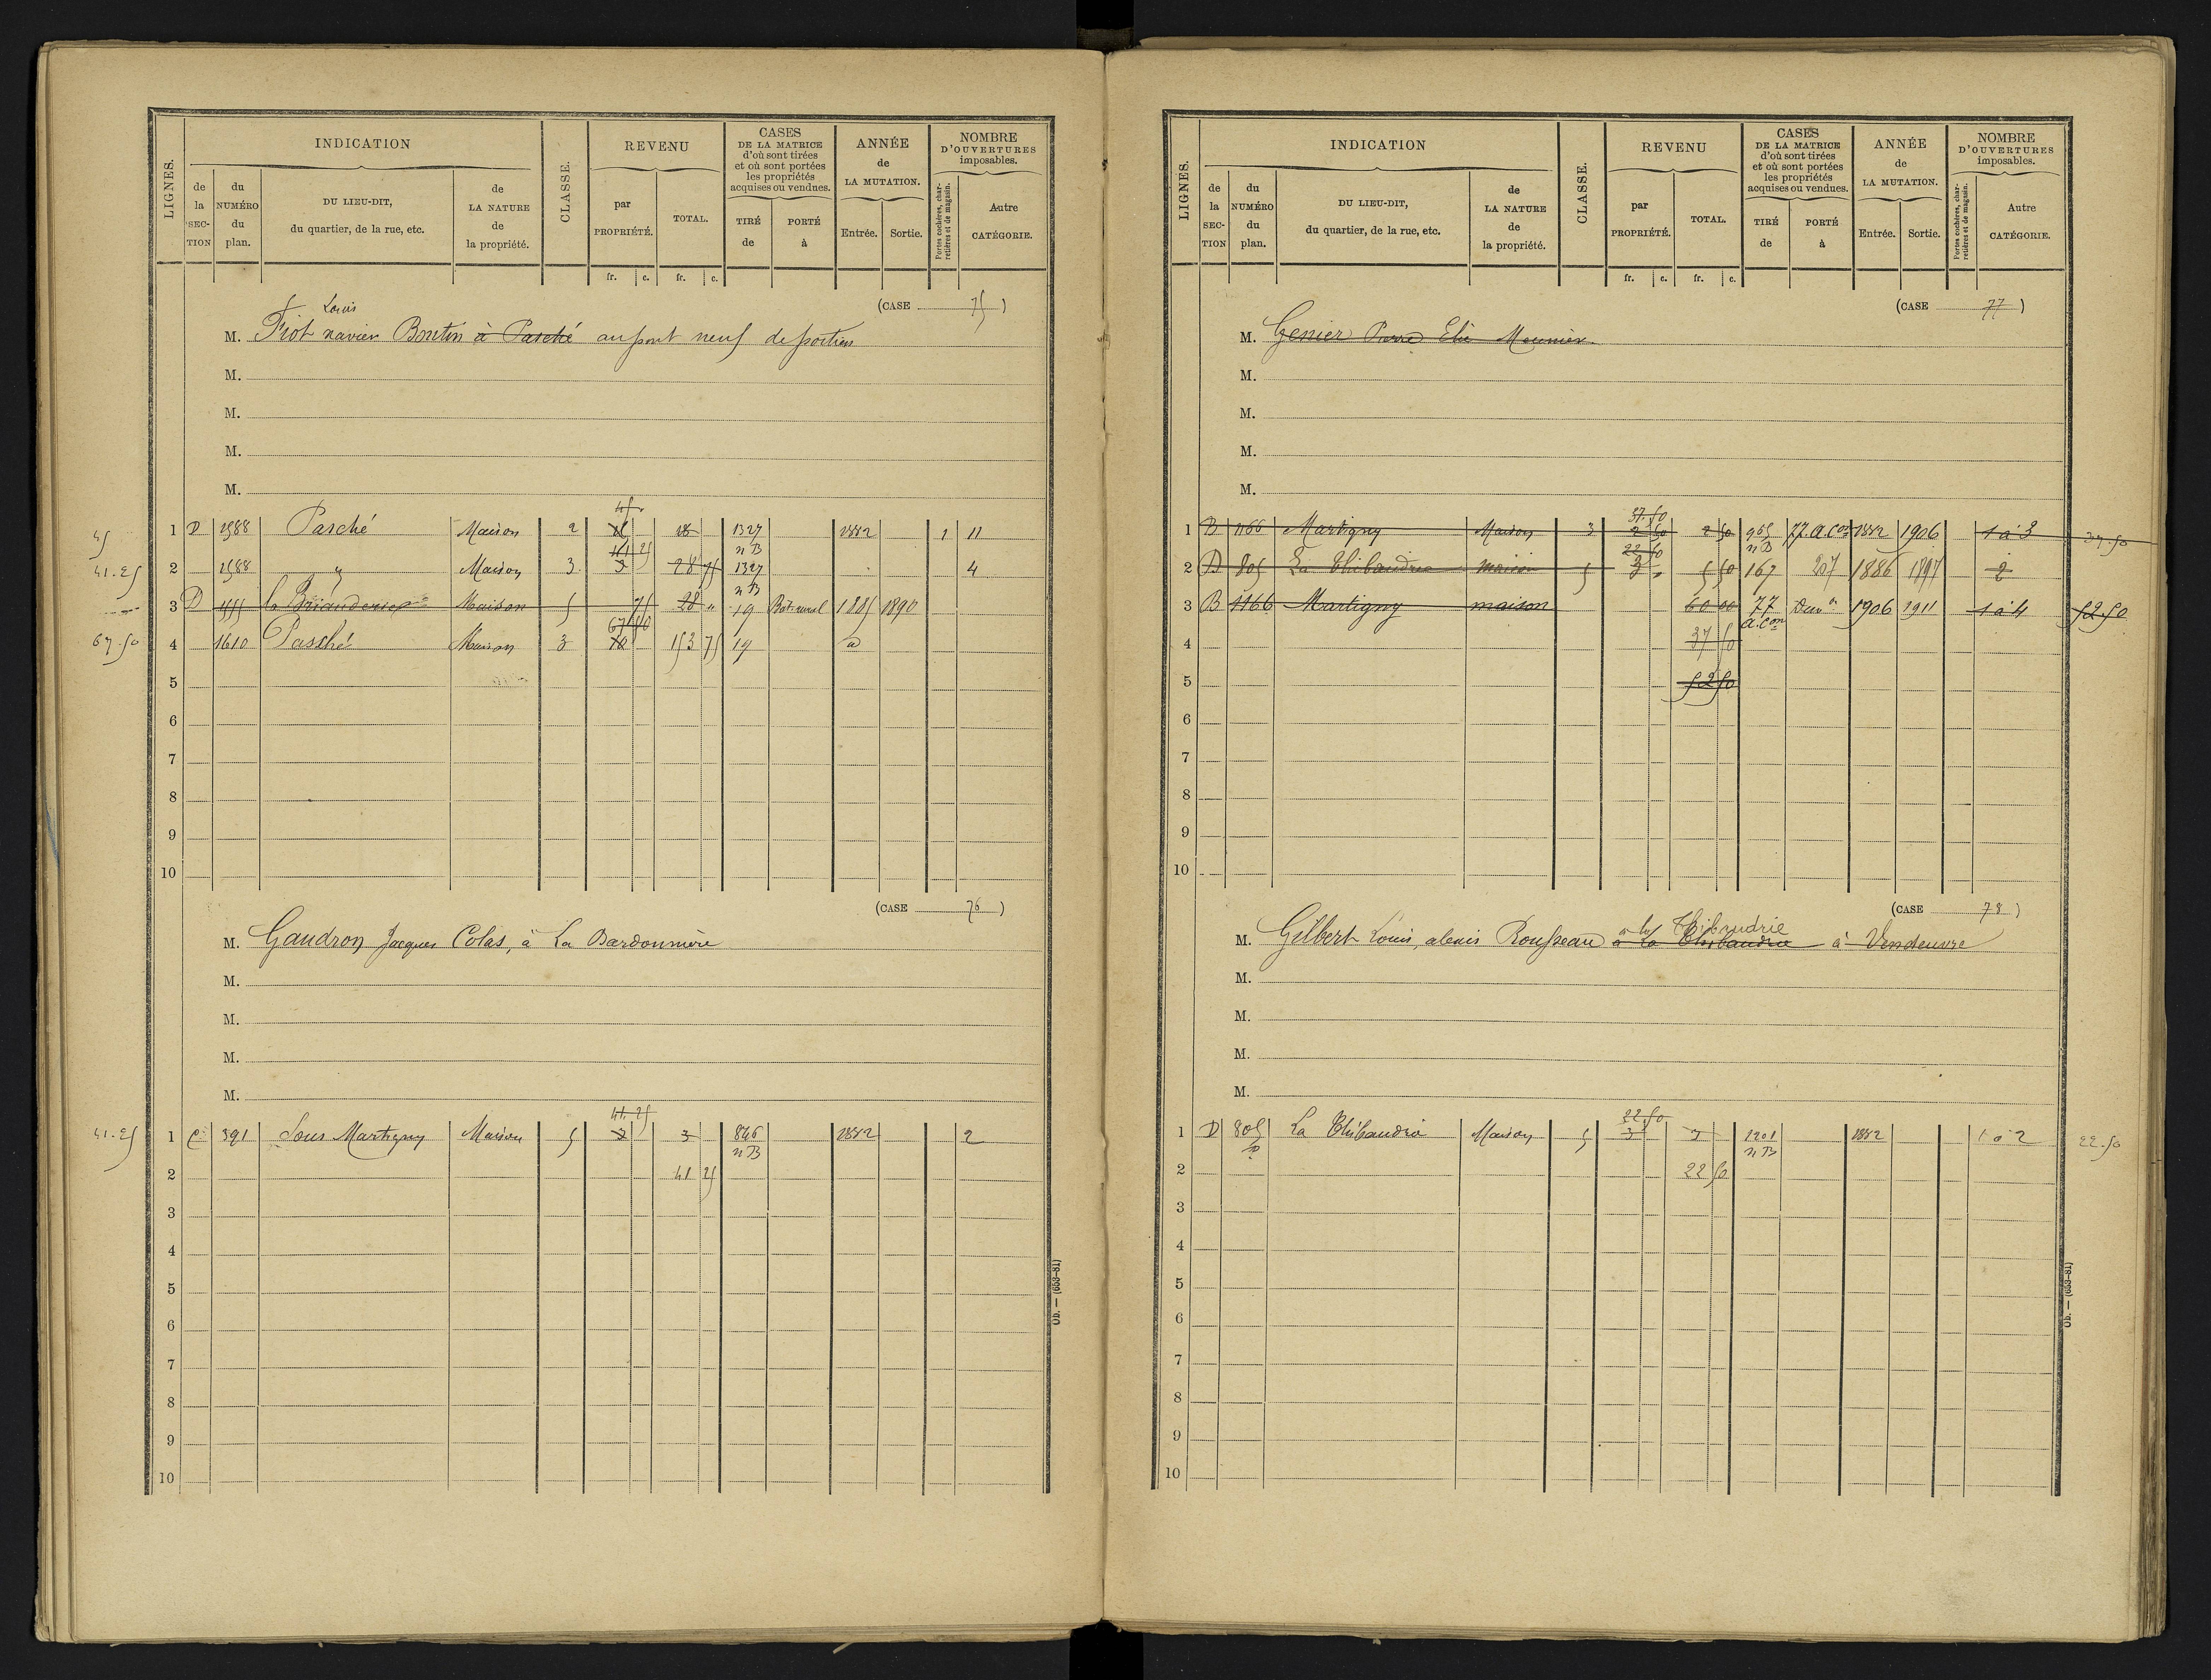 LIGNES.
INDICATION
de la SECTION
du NUMÉRO du plan.
DU LIEU-DIT, du quartier, de la rue, etc.
de LA NATURE de la propriété.
CLASSE.
REVENU
par PROPRIÉTÉ.
TOTAL.
fr. c. fr. c.
CASES DE LA MATRICE d'où sont tirées et où sont portées les propriétés acquises ou vendues.
TIRÉ de
PORTÉ à
ANNÉE de LA MUTATION.
Entrée. Sortie.
NOMBRE D'OUVERTURES imposables.
Portes cochères, charretières et de magasin.
Autre CATÉGORIE.
(CASE 75)
Louis
M. Fiot xavier Boutin à Pasché au pont neuf de poitiers
M.
M.
M.
M.
45
45 1 D 1588 Pasché Maison 2 18 1327 1882 1 11
41 25 n B
41.25 2 1588 " Maison 3 3 28 75 1327 4
n B
3 D la Briauderie Maison 5 75 28 " 19 Bât. rural 1885 1890
67 50
67.50 4 1610 Pasché Maison 3 153 75 19 d
5
6
7
8
9
10
(CASE 76)
M. Gaudron Jacques Colas, à La Bardonnière
M.
M.
M.
M.
41.25
41.25 1 C 391 Sous Martigny Maison 5 3 3 846 1882 2
n B
2 41 25
3
4
5
6
7
8
9
10
Ob. — (653-81)
LIGNES.
INDICATION
de la SECTION
du NUMÉRO du plan.
DU LIEU-DIT, du quartier, de la rue, etc.
de LA NATURE de la propriété.
CLASSE.
REVENU
par PROPRIÉTÉ.
TOTAL.
fr. c. fr. c.
CASES DE LA MATRICE d'où sont tirées et où sont portées les propriétés acquises ou vendues.
TIRÉ de
PORTÉ à
ANNÉE de LA MUTATION.
Entrée. Sortie.
NOMBRE D'OUVERTURES imposables.
Portes cochères, charretières et de magasin.
Autre CATÉGORIE.
(CASE 77)
M. Genier Pierre Elie Meunier
M.
M.
M.
M.
37.50
1 B 1166 Martigny Maison 3 2 50 2 50 965 77. a. con 1882 1906 1 à 3 37.50
22 50 n B
2 D 805 La Thibaudrie maison 5 3 " 5 50 167 207 1886 1897 2
3 B 1166 Martigny maison 60 00 77 1906 1911 1 à 4 52 50
a. con
4 37 50
5 52 50
6
7
8
9
10
(CASE 78)
à la Thibaudrie
M. Gilbert Louis, alexis Rousseau à la Thibaudrie à Vendeuvre
M.
M.
M.
M.
22.50
1 D 805 La Thibaudrie Maison 5 3 3 1201 1882 1 à 2 22.50
p n B
2 22 50
3
4
5
6
7
8
9
10
Ob. — (653-81)